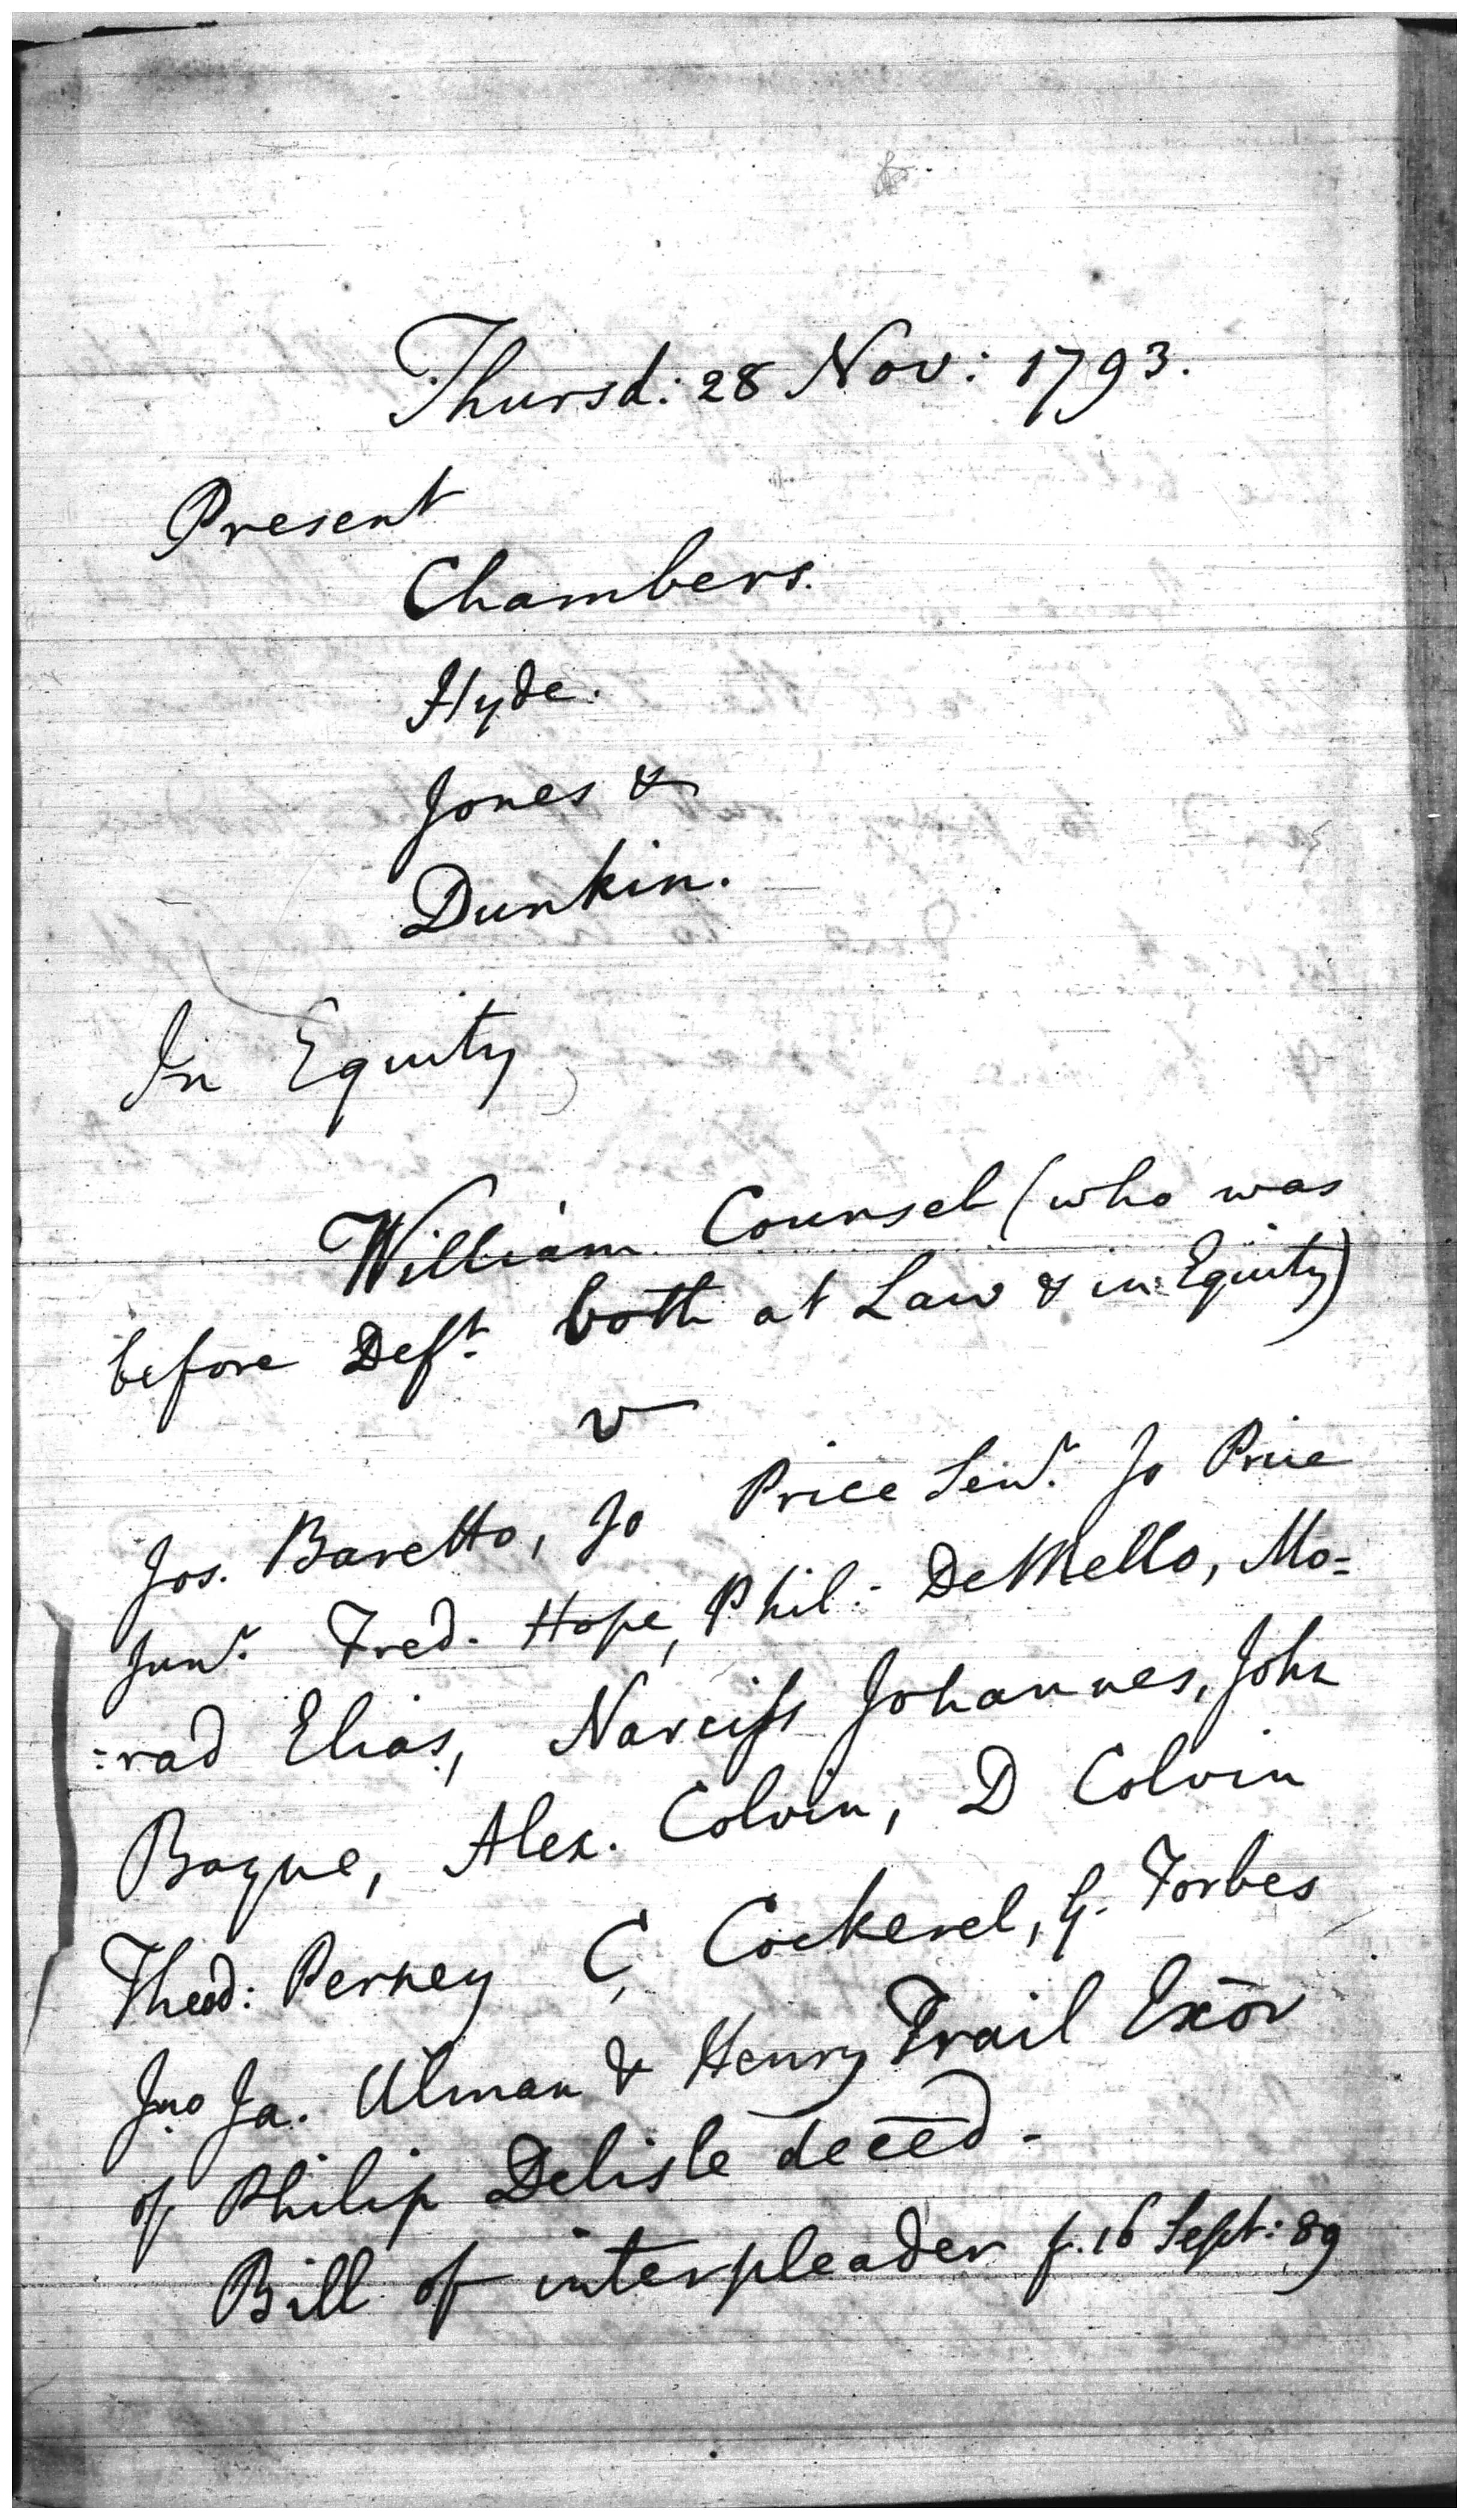 Thursd: 28 Nov: 1793.
Present
Chambers.
Hyde.
Jones &
Dunkin.
In Equity
William Counsel (who was
before Deft. both at Law & in Equity)
v
Jos. Baretto, Jo Price Senr. Jo Price
Junr. Fred. Hope, Phil: DeMello, Mo=
:rad Elias, Narciss Johannes, John
Bagne, Alex. Colvin, D Colvin
Theod: Perney C, Cockerel, G. Forbes
Jno Ja. Ulman & Henry Trail Exor
of Philip Delisle deced.
Bill of interpleader f. 16 Sept: 89